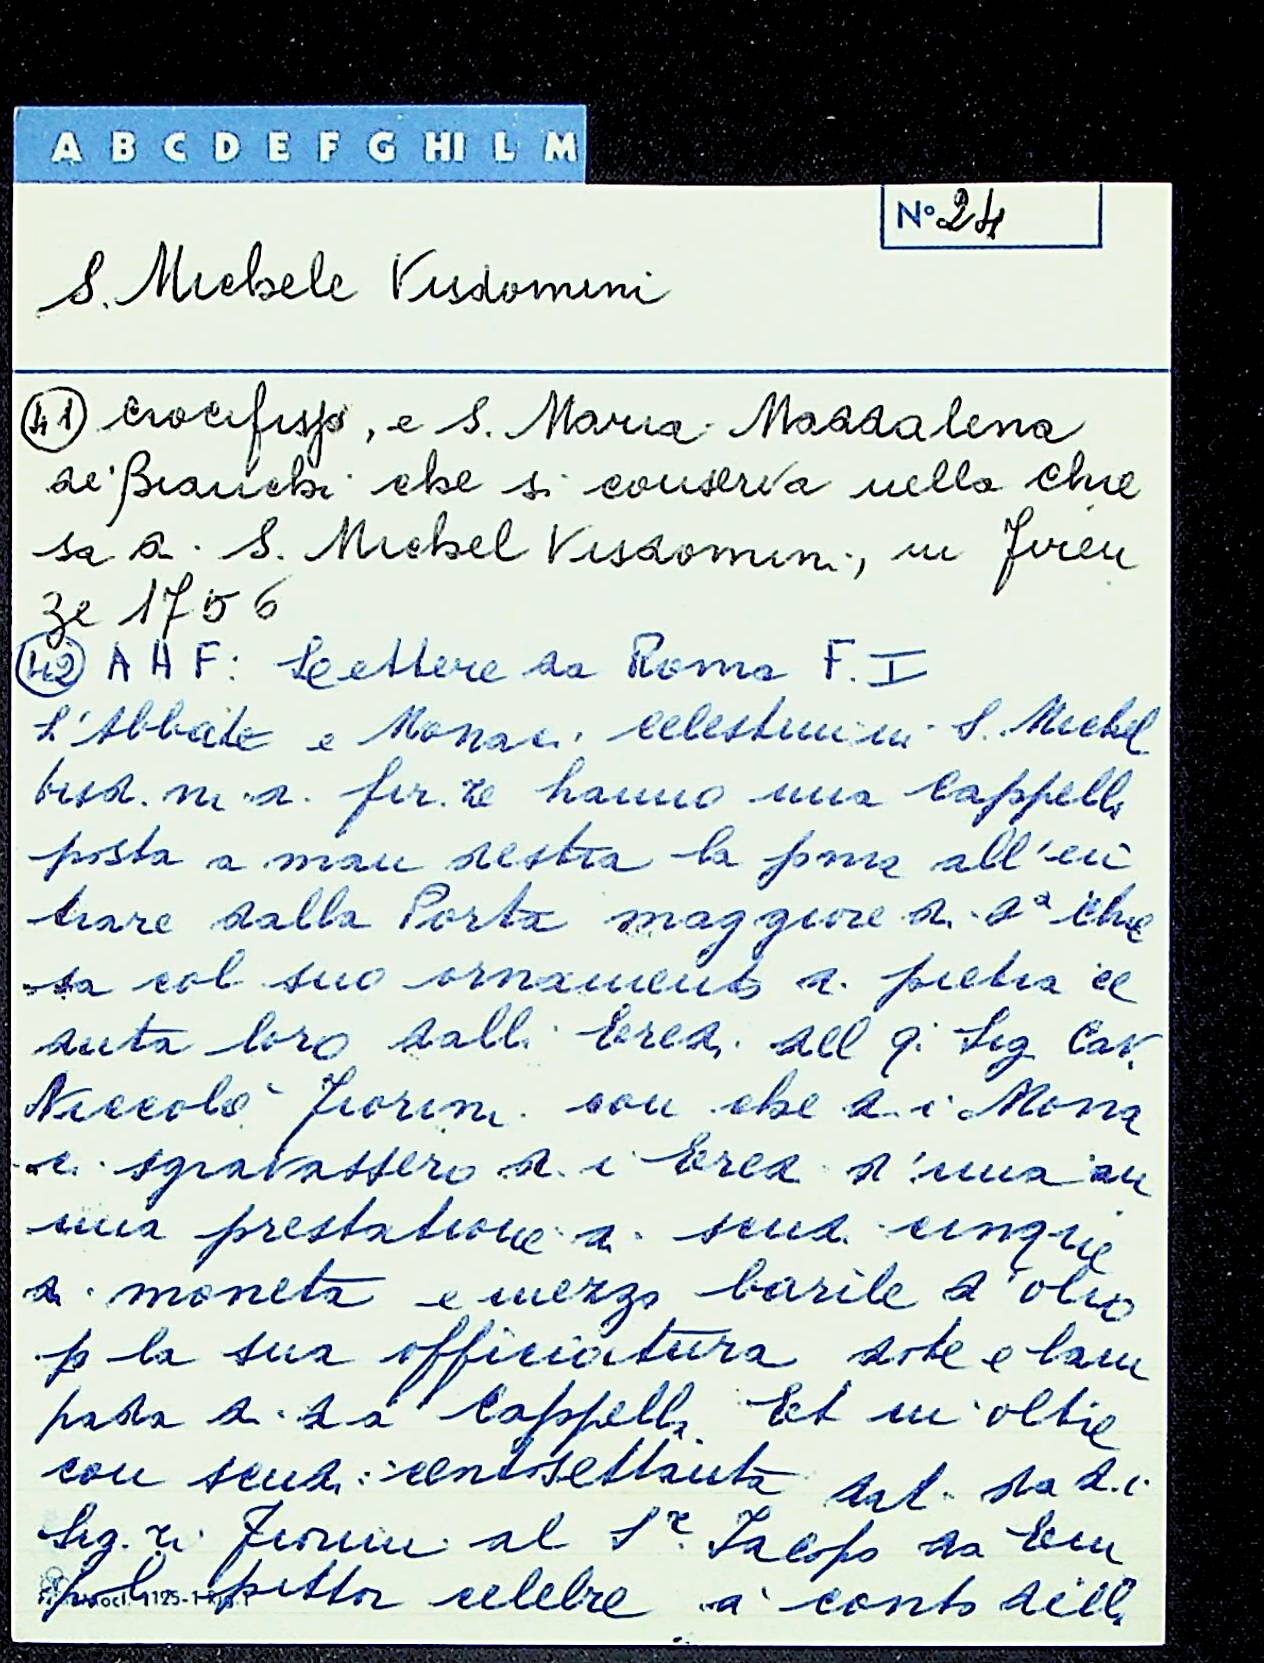 A B C D E F G HI L M
N° 24
S. Michele Visdomini
41 crocifisso, e S. Maria Maddalena
de' Bianchi che si conserva nella chie
sa di S. Michel Visdomini, in Firen
ze 1756
42 A H F: Lettere da Roma F. I
L'Abbate e Monaci Celestini in S. Michel
bisd.ni di fir.ze hanno una Cappella
posta a man destra la pma all'en
trare dalla Porta maggiore di da Chie
sa col suo ornamento di pietra ce
duta loro dalli Eredi del q. Sig Cav.
Niccolò Fiorini con che d.i Mona
ci sgravassero d.i Eredi d'una an
nua prestatione di scudi cinque
di moneta e mezzo barile d'olio
p la sua officiatura dote e lam
pada di da Cappella Et in oltre
con scudi centosettanta dat. da d.i
Sig.ri Fiorini al Sr. Iacopo da Em
poli pittor celebre a conto della
1125-1